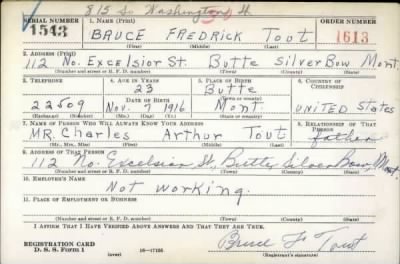 815 So Washington St
SERIAL NUMBER 1. NAME (Print) ORDER NUMBER
1543 BRUCE FREDRICK TOUT 1613
(First) (Middle) (Last)
2. ADDRESS (Print)
112 No. Excelsior St. Butte Silver Bow Mont.
(Number and street or R. F. D. number) (Town) (County) (State)
3. TELEPHONE 4. AGE IN YEARS 5. PLACE OF BIRTH 6. COUNTRY OF CITIZENSHIP
23 Butte
22509 DATE OF BIRTH (Town or county)
Nov. 7 1916 Mont. UNITED States
(Exchange) (Number) (Mo.) (Day) (Yr.) (State or country)
7. NAME OF PERSON WHO WILL ALWAYS KNOW YOUR ADDRESS 8. RELATIONSHIP OF THAT PERSON
MR. Charles Arthur Tout father
(Mr., Mrs., Miss) (First) (Middle) (Last)
9. ADDRESS OF THAT PERSON
112 No. Excelsior St., Butte, Silver Bow, Mont.
(Number and street or R. F. D. number) (Town) (County) (State)
10. EMPLOYER'S NAME
Not working.
11. PLACE OF EMPLOYMENT OR BUSINESS
(Number and street or R. F. D. number) (Town) (County) (State)
I AFFIRM THAT I HAVE VERIFIED ABOVE ANSWERS AND THAT THEY ARE TRUE.
REGISTRATION CARD
D. S. S. Form 1 (over) 16—17105 Bruce F Tout
(Registrant's signature)